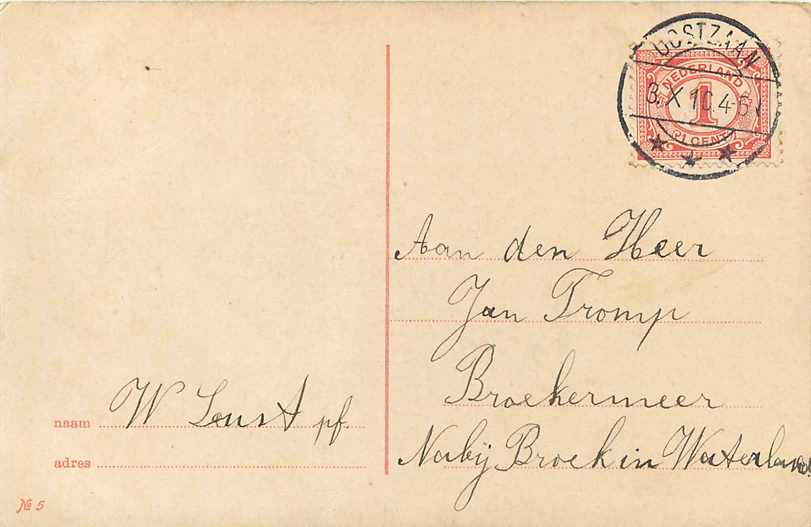 OOSTZAAN
NEDERLAND
1
1 CENT
Aan den Heer
Jan Tromp
Broekermeer
Nabij Broek in Waterland
naam W pf.
adres
№ 5